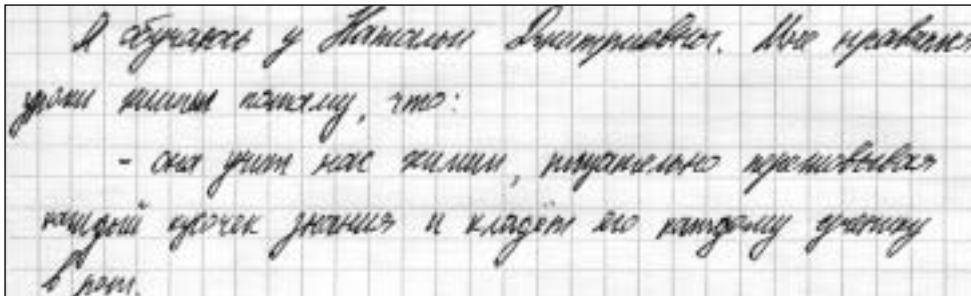 Я обучаюсь у Натальи Дмитриевны. Мне нравятся
уроки химии потому, что:
- она учит нас химии, тщательно пережовывая
каждый кусочек знания и кладёт его каждому ученику
в рот.